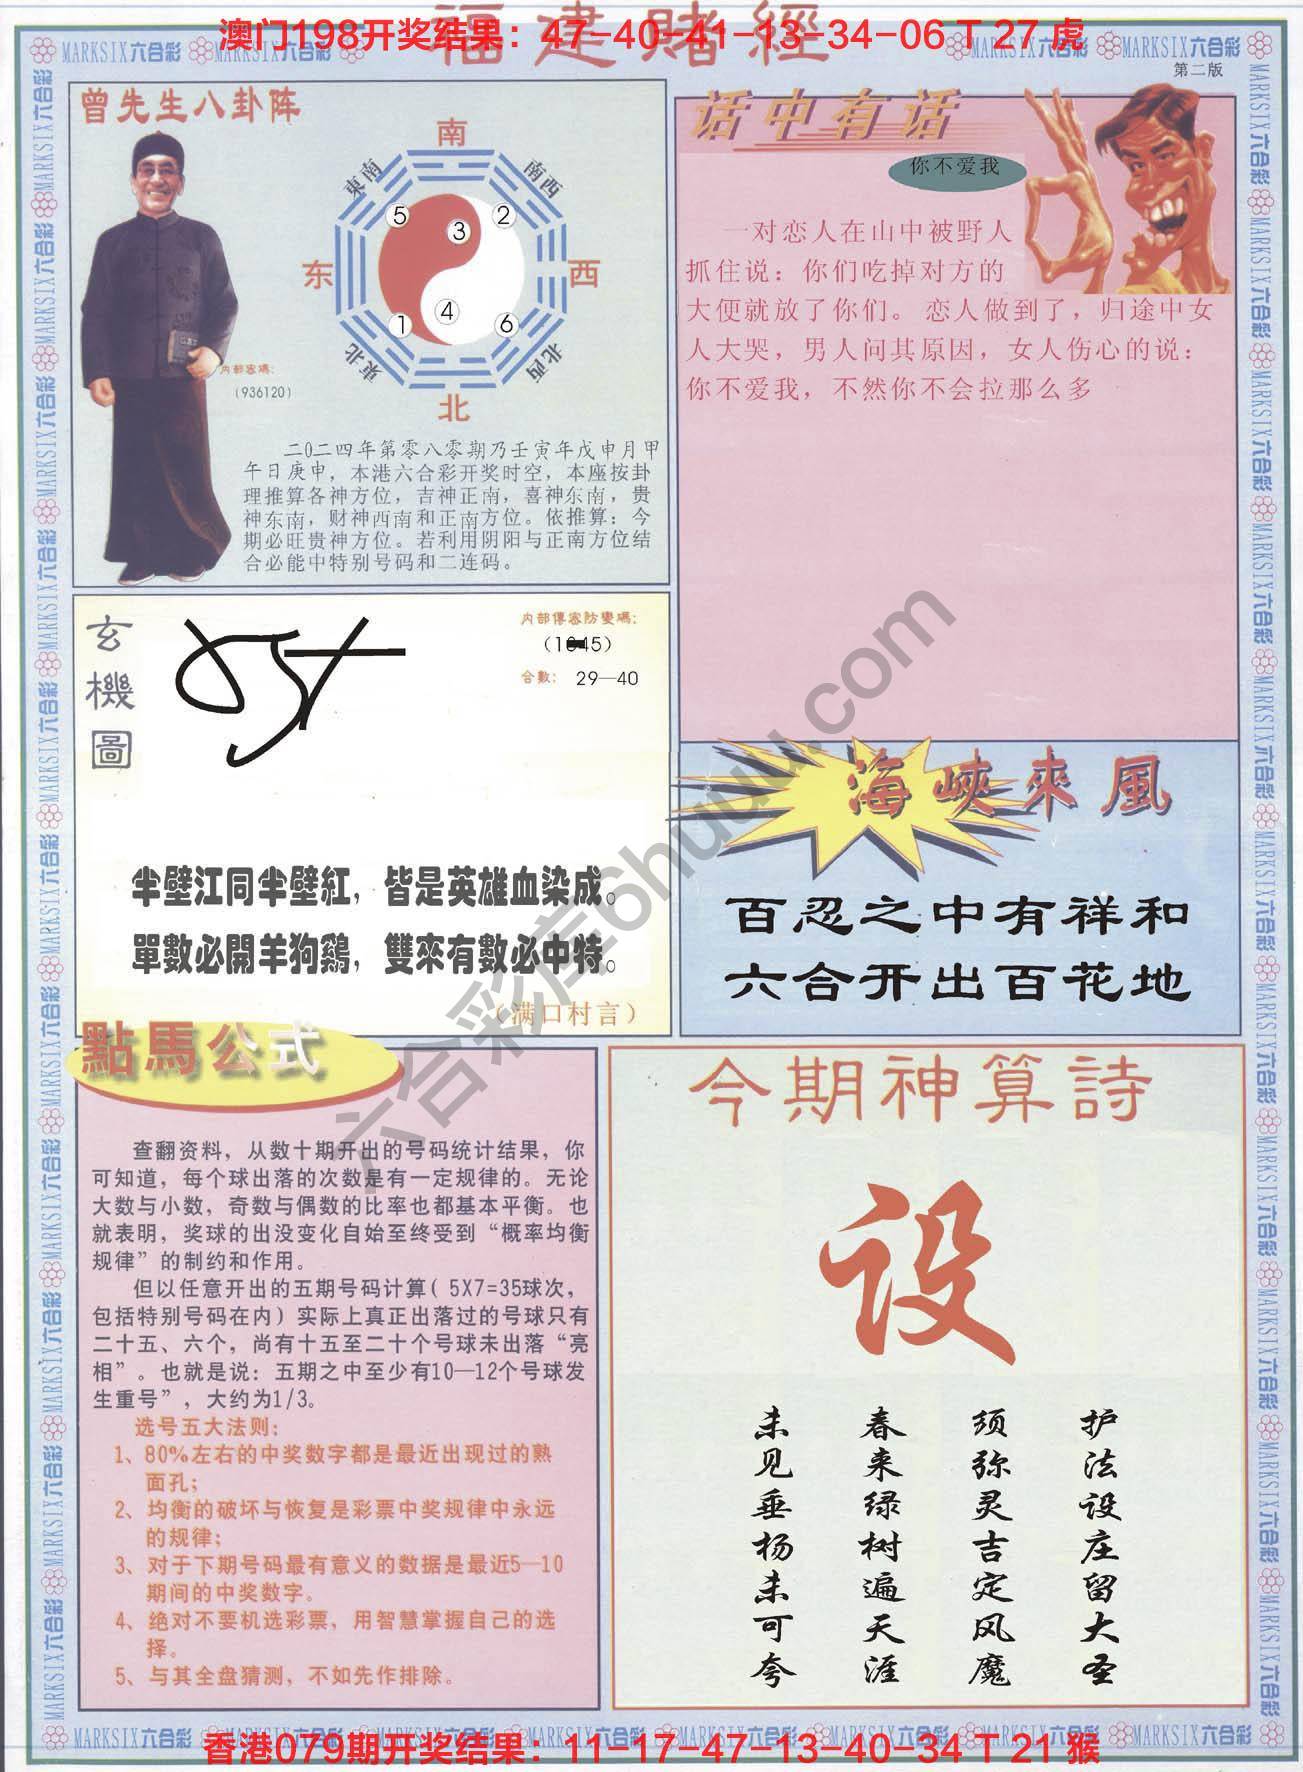 澳门198开奖结果：47-40-41-13-34-06 T 27 虎
福建賭經
MARKSIX六合彩
第二版
曾先生八卦阵
南
東南
南西
5
3
2
东
西
4
1
6
東北
北西
北
内部密碼：
（936120）
二〇二四年第零八零期乃壬寅年戊申月甲
午日庚申，本港六合彩开奖时空，本座按卦
理推算各神方位，吉神正南，喜神东南，贵
神东南，财神西南和正南方位。依推算：今
期必旺贵神方位。若利用阴阳与正南方位结
合必能中特别号码和二连码。
话中有话
你不爱我
一对恋人在山中被野人
抓住说：你们吃掉对方的
大便就放了你们。恋人做到了，归途中女
人大哭，男人问其原因，女人伤心的说：
你不爱我，不然你不会拉那么多
玄機圖
内部傳密防變碼：
合數： 29—40
半壁江同半壁紅，皆是英雄血染成。
單數必開羊狗鷄，雙來有數必中特。
（满口村言）
海峽來風
百忍之中有祥和
六合开出百花地
六合彩库6huuu.com
點馬公式
查翻资料，从数十期开出的号码统计结果，你
可知道，每个球出落的次数是有一定规律的。无论
大数与小数，奇数与偶数的比率也都基本平衡。也
就表明，奖球的出没变化自始至终受到“概率均衡
规律”的制约和作用。
但以任意开出的五期号码计算（5X7=35球次，
包括特别号码在内）实际上真正出落过的号球只有
二十五、六个，尚有十五至二十个号球未出落“亮
相”。也就是说：五期之中至少有10—12个号球发
生重号”，大约为1/3。
选号五大法则：
1、80%左右的中奖数字都是最近出现过的熟
面孔；
2、均衡的破坏与恢复是彩票中奖规律中永远
的规律；
3、对于下期号码最有意义的数据是最近5—10
期间的中奖数字。
4、绝对不要机选彩票，用智慧掌握自己的选
择。
5、与其全盘猜测，不如先作排除。
今期神算詩
设
护法设庄留大圣
须弥灵吉定风魔
春来绿树遍天涯
未见垂杨未可夸
香港079期开奖结果：11-17-47-13-40-34 T 21 猴